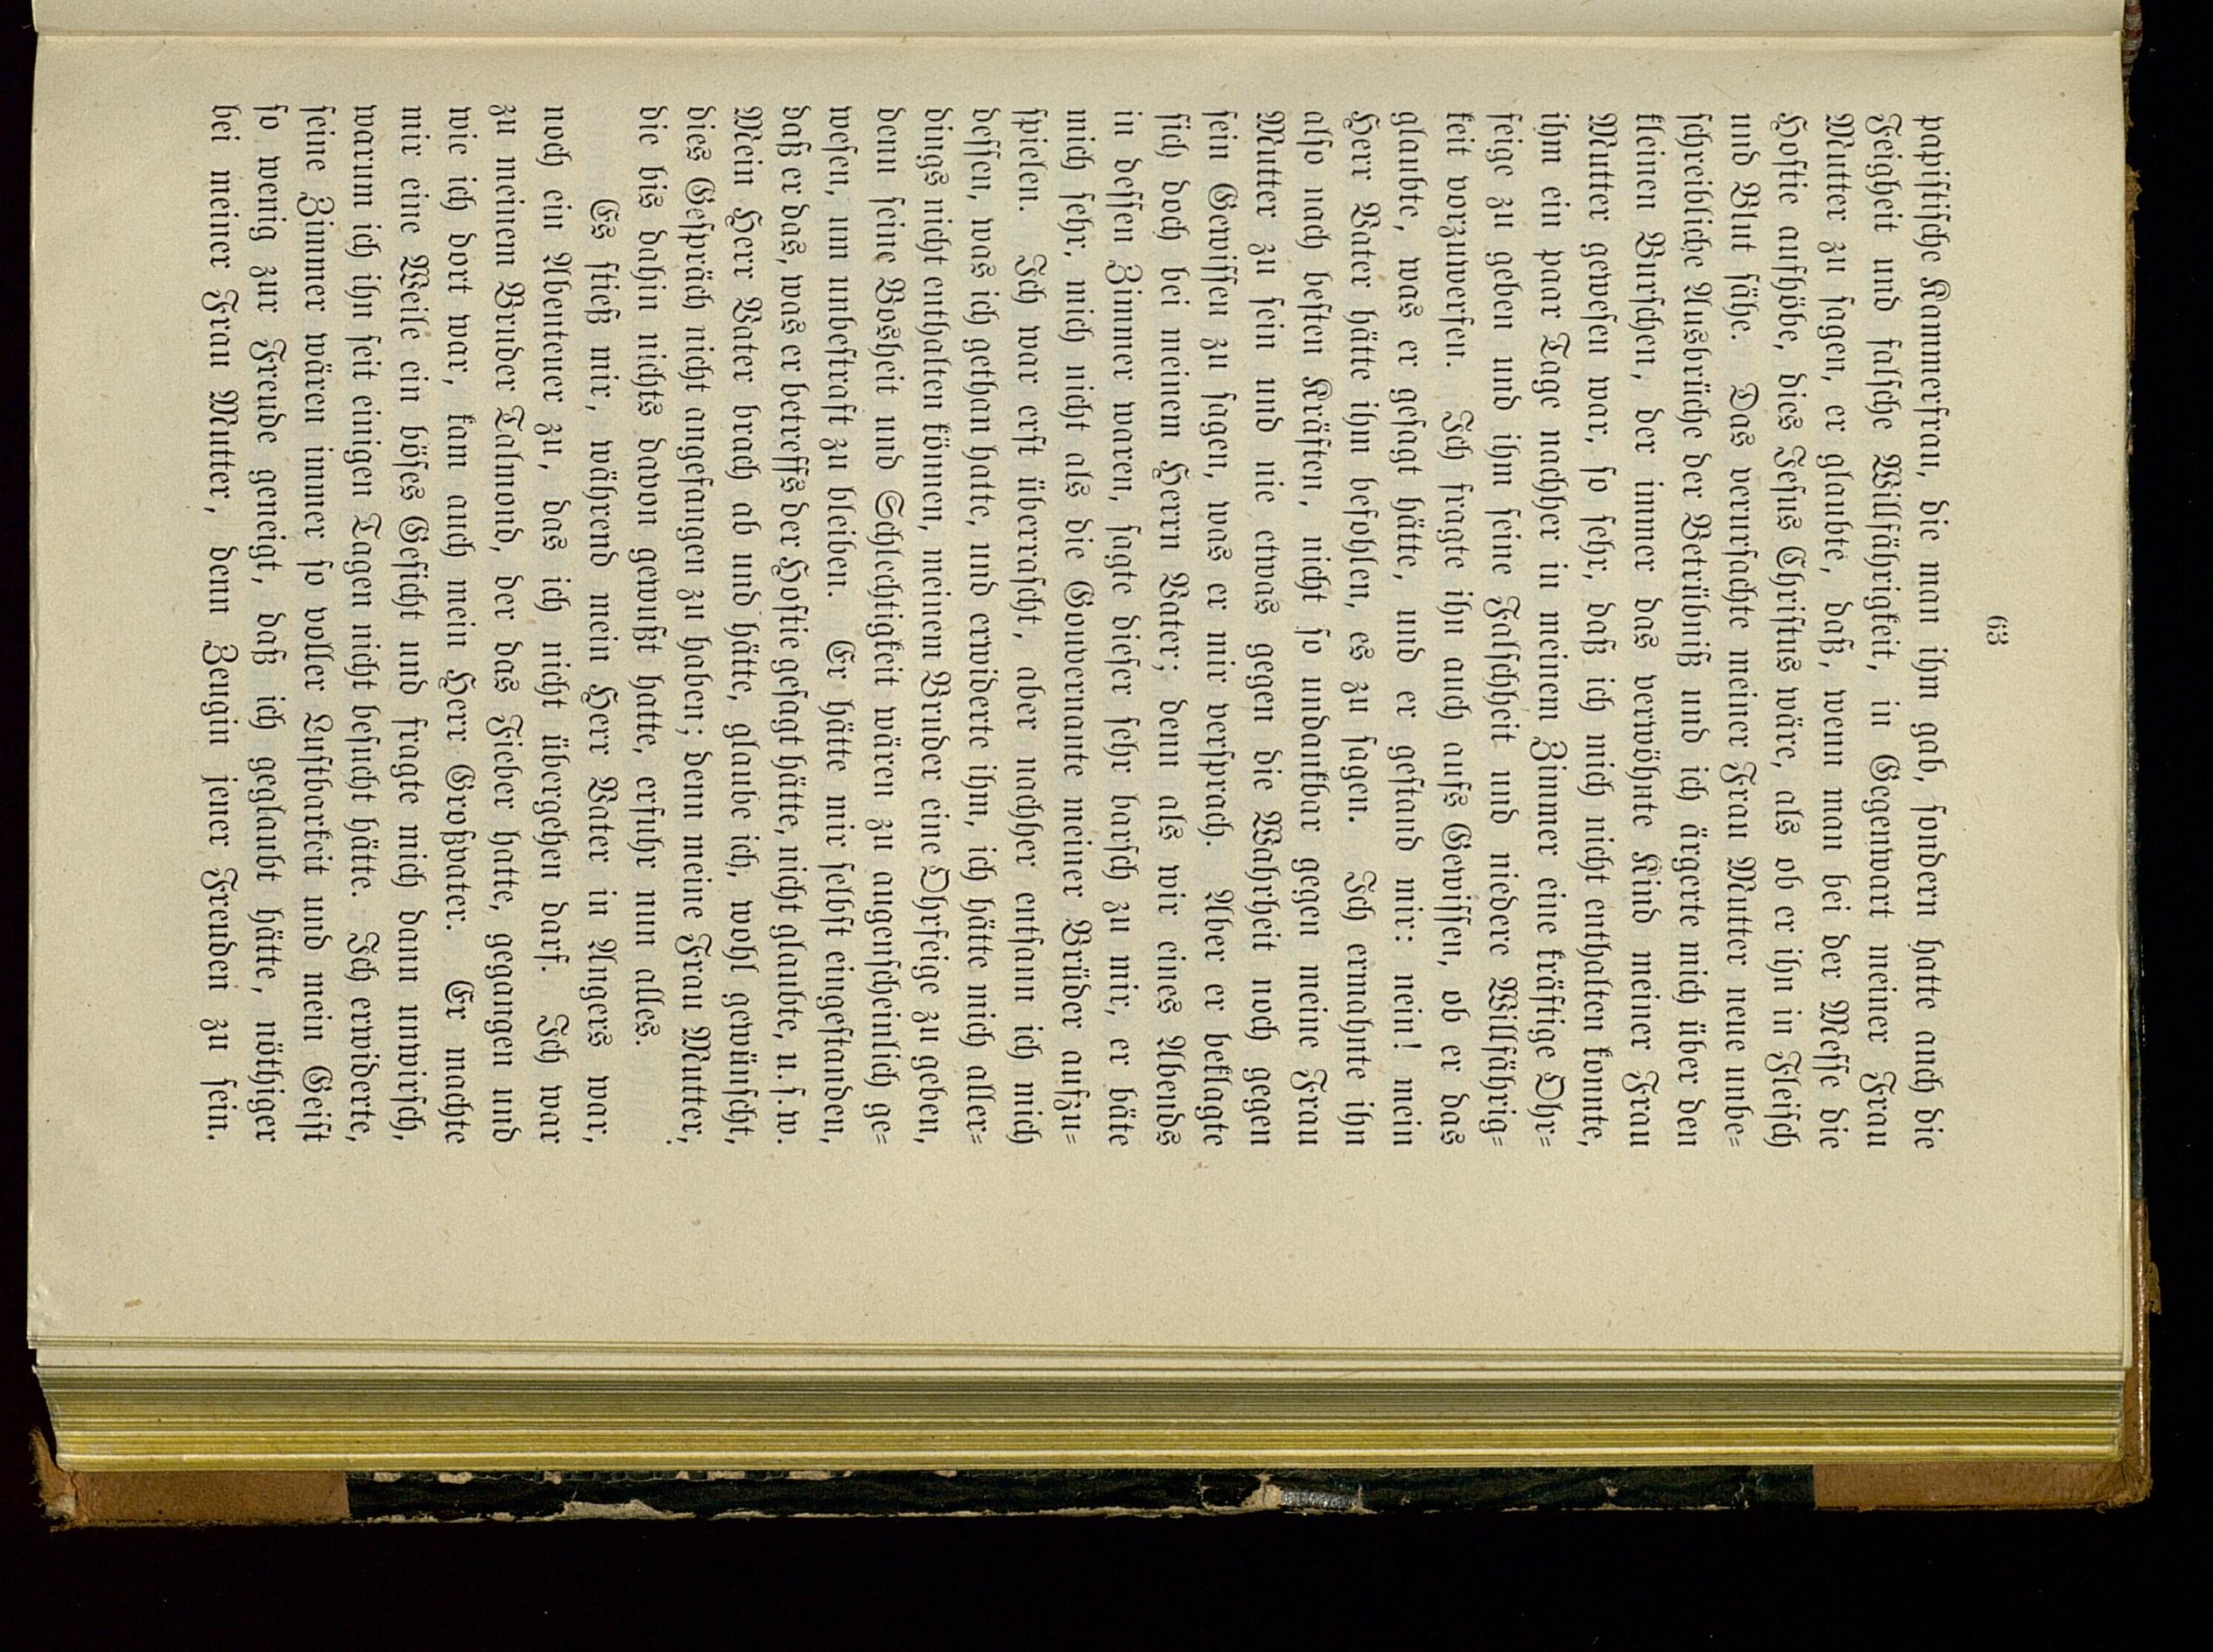 63
papiſtiſche Kammerfrau, die man ihm gab, ſondern hatte auch die
Feigheit und falſche Willfährigkeit, in Gegenwart meiner Frau
Mutter zu ſagen, er glaubte, daß, wenn man bei der Meſſe die
Hoſtie aufhöbe, dies Jeſus Chriſtus wäre, als ob er ihn in Fleiſch
und Blut ſähe. Das verurſachte meiner Frau Mutter neue unbe⸗
ſchreibliche Ausbrüche der Betrübniß und ich ärgerte mich über den
kleinen Burſchen, der immer das verwöhnte Kind meiner Frau
Mutter geweſen war, ſo ſehr, daß ich mich nicht enthalten konnte,
ihm ein paar Tage nachher in meinem Zimmer eine kräftige Ohr⸗
feige zu geben und ihm ſeine Falſchheit und niedere Willfährig⸗
keit vorzuwerfen. Ich fragte ihn auch aufs Gewiſſen, ob er das
glaubte, was er geſagt hätte, und er geſtand mir: nein! mein
Herr Vater hätte ihm befohlen, es zu ſagen. Ich ermahnte ihn
alſo nach beſten Kräften, nicht ſo undankbar gegen meine Frau
Mutter zu ſein und nie etwas gegen die Wahrheit noch gegen
ſein Gewiſſen zu ſagen, was er mir verſprach. Aber er beklagte
ſich doch bei meinem Herrn Vater; denn als wir eines Abends
in deſſen Zimmer waren, ſagte dieſer ſehr barſch zu mir, er bäte
mich ſehr, mich nicht als die Gouvernante meiner Brüder aufzu⸗
ſpielen. Ich war erſt überraſcht, aber nachher entſann ich mich
deſſen, was ich gethan hatte, und erwiderte ihm, ich hätte mich aller⸗
dings nicht enthalten können, meinem Bruder eine Ohrfeige zu geben,
denn ſeine Bosheit und Schlechtigkeit wären zu augenſcheinlich ge⸗
weſen, um unbeſtraft zu bleiben. Er hätte mir ſelbſt eingeſtanden,
daß er das, was er betreffs der Hoſtie geſagt hätte, nicht glaubte, u. ſ. w.
Mein Herr Vater brach ab und hätte, glaube ich, wohl gewünſcht,
dies Geſpräch nicht angefangen zu haben; denn meine Frau Mutter,
die bis dahin nichts davon gewußt hatte, erfuhr nun alles.
Es ſtieß mir, während mein Herr Vater in Angers war,
noch ein Abenteuer zu, das ich nicht übergehen darf. Ich war
zu meinem Bruder Talmond, der das Fieber hatte, gegangen und
wie ich dort war, kam auch mein Herr Großvater. Er machte
mir eine Weile ein böſes Geſicht und fragte mich dann unwirſch,
warum ich ihn ſeit einigen Tagen nicht beſucht hätte. Ich erwiderte,
ſeine Zimmer wären immer ſo voller Luſtbarkeit und mein Geiſt
ſo wenig zur Freude geneigt, daß ich geglaubt hätte, nöthiger
bei meiner Frau Mutter, denn Zeugin jener Freuden zu ſein.